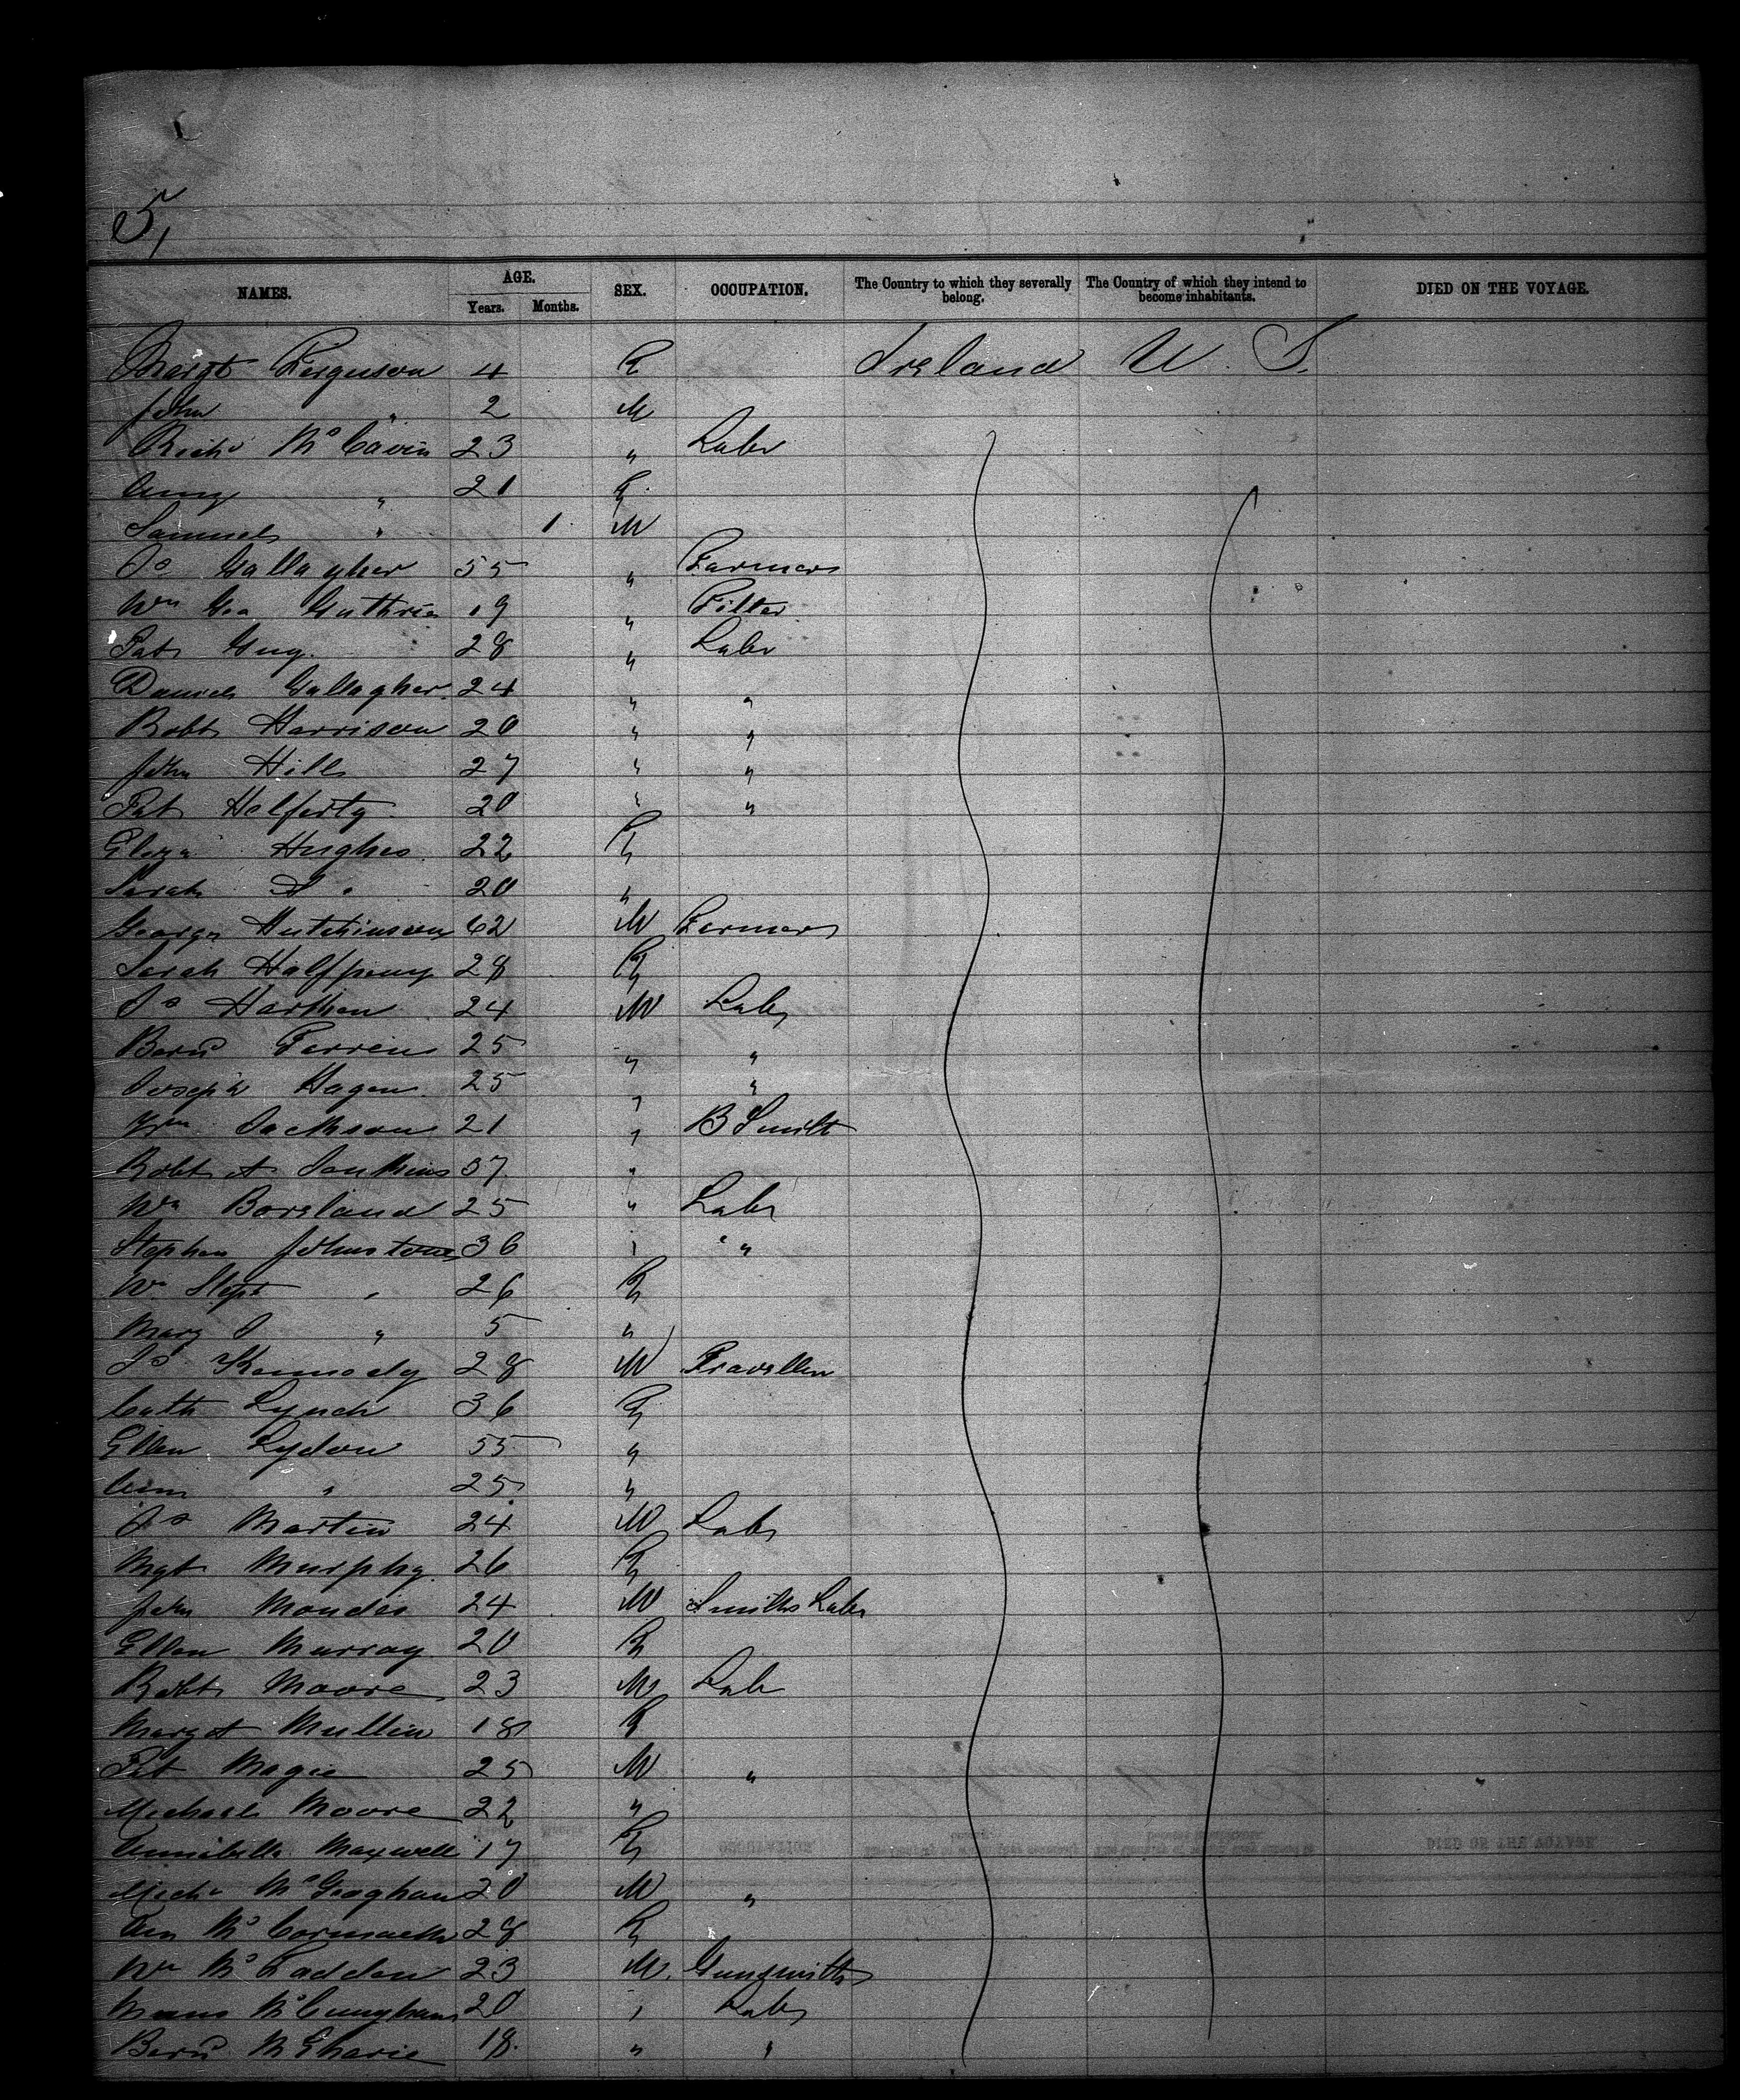 5,
NAMES. AGE. SEX. OCCUPATION. The Country to which they severally belong. The Country of which they intend to become inhabitants. DIED ON THE VOYAGE.
Years. Months.
Margt Ferguson 4 F Ireland U. S.
John " 2 M
Richd McCavin 23 " Labr
Amy " 21 F
Samuel " 1 M
Js Gallagher 55 " Farmer
Wm Geo Guthrie 19 " Fitter
Pat Guy 28 " Labr
Daniel Gallagher 24 " "
Robt Harrison 20 " "
John Hill 27 " "
Pat Helferty 20 " "
Eliza Hughes 22 F
Sarah S " 20 "
George Hutchinson 62 M Farmer
Sarah Halfpenny 28 F
Js Harthen 24 M Labr
Bernd Ferren 25 " "
Joseph Hagen 25 " "
Wm Jackson 21 " B Smith
Robt A Jenkins 37 "
Wm Boreland 25 " Labr
Stephen Johnstone 36 " "
W Steph " 26 F
Mary J " 5 "
Js Kennedy 28 M Traveller
Cath Lynch 36 F
Ellen Lydon 55 "
Ann " 25 "
Js Martin 24 M Labr
Mgt Murphy 26 F
John 24 M Smiths Labr
Ellen Murray 20 F
Robt Moore 23 M Labr
Margt Mullin 18 F
Pat Magee 25 M "
Michael Moore 22 "
Annibella Maxwell 17 F
Michl McGeoghan 20 M "
Ann McCormack 28 F
Wm McFadden 23 M Gunsmith
Manus McCunyham 20 " Labr
Bernd 18 " "